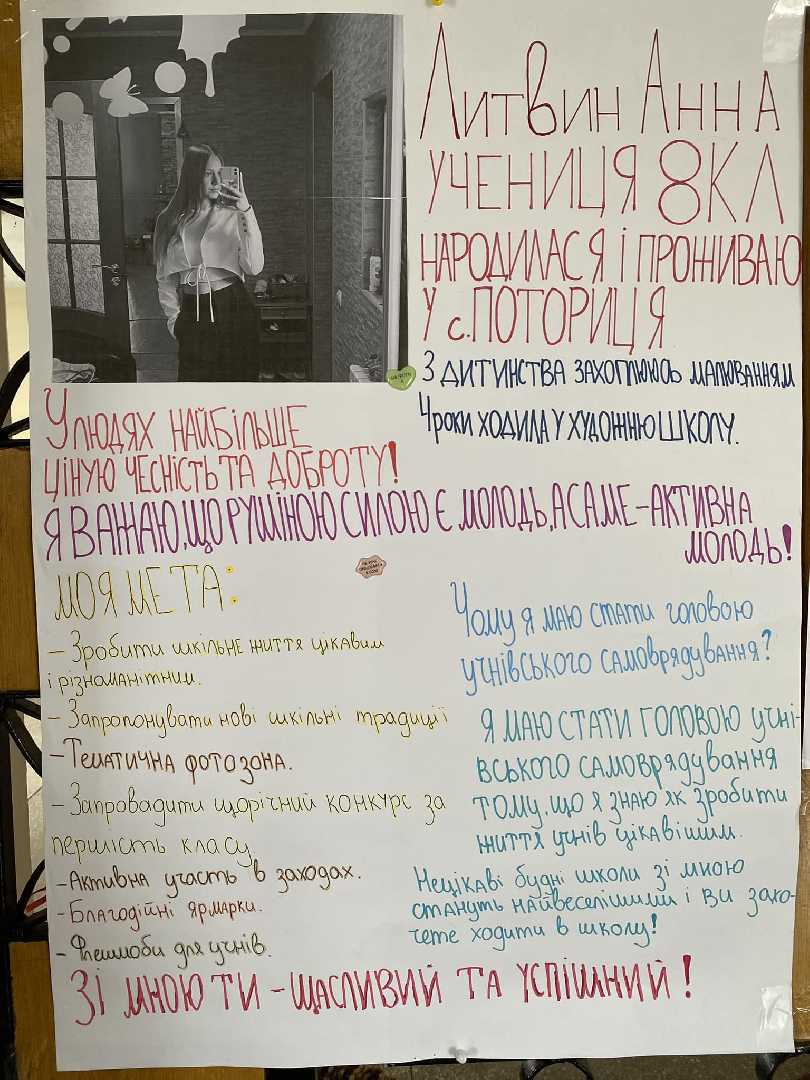 Литвин Анна
учениця 8кл
народилася і проживаю
у с. Поториця
З дитинства захоплююсь малюванням
4 роки ходила у художню школу.
У людях найбільше
ціную чесність та доброту!
Я вважаю, що рушіною силою є молодь, а саме - активна
молодь!
Моя мета:
- Зробити шкільне життя цікавим
і різноманітним.
- Запропонувати нові шкільні традиції
- Тематична фотозона.
- Запровадити щорічний конкурс за
першість класу
- Активна участь в заходах.
- Благодійні ярмарки.
- Флешмоби для учнів.
Чому я маю стати головою
учнівського самоврядування?
Я маю стати головою учні-
вського самоврядування
тому, що я знаю як зробити
життя учнів цікавішим.
Нецікаві будні школи зі мною
стануть найвеселішими і ви захо-
чете ходити в школу!
Зі мною ти - щасливий та успішний!